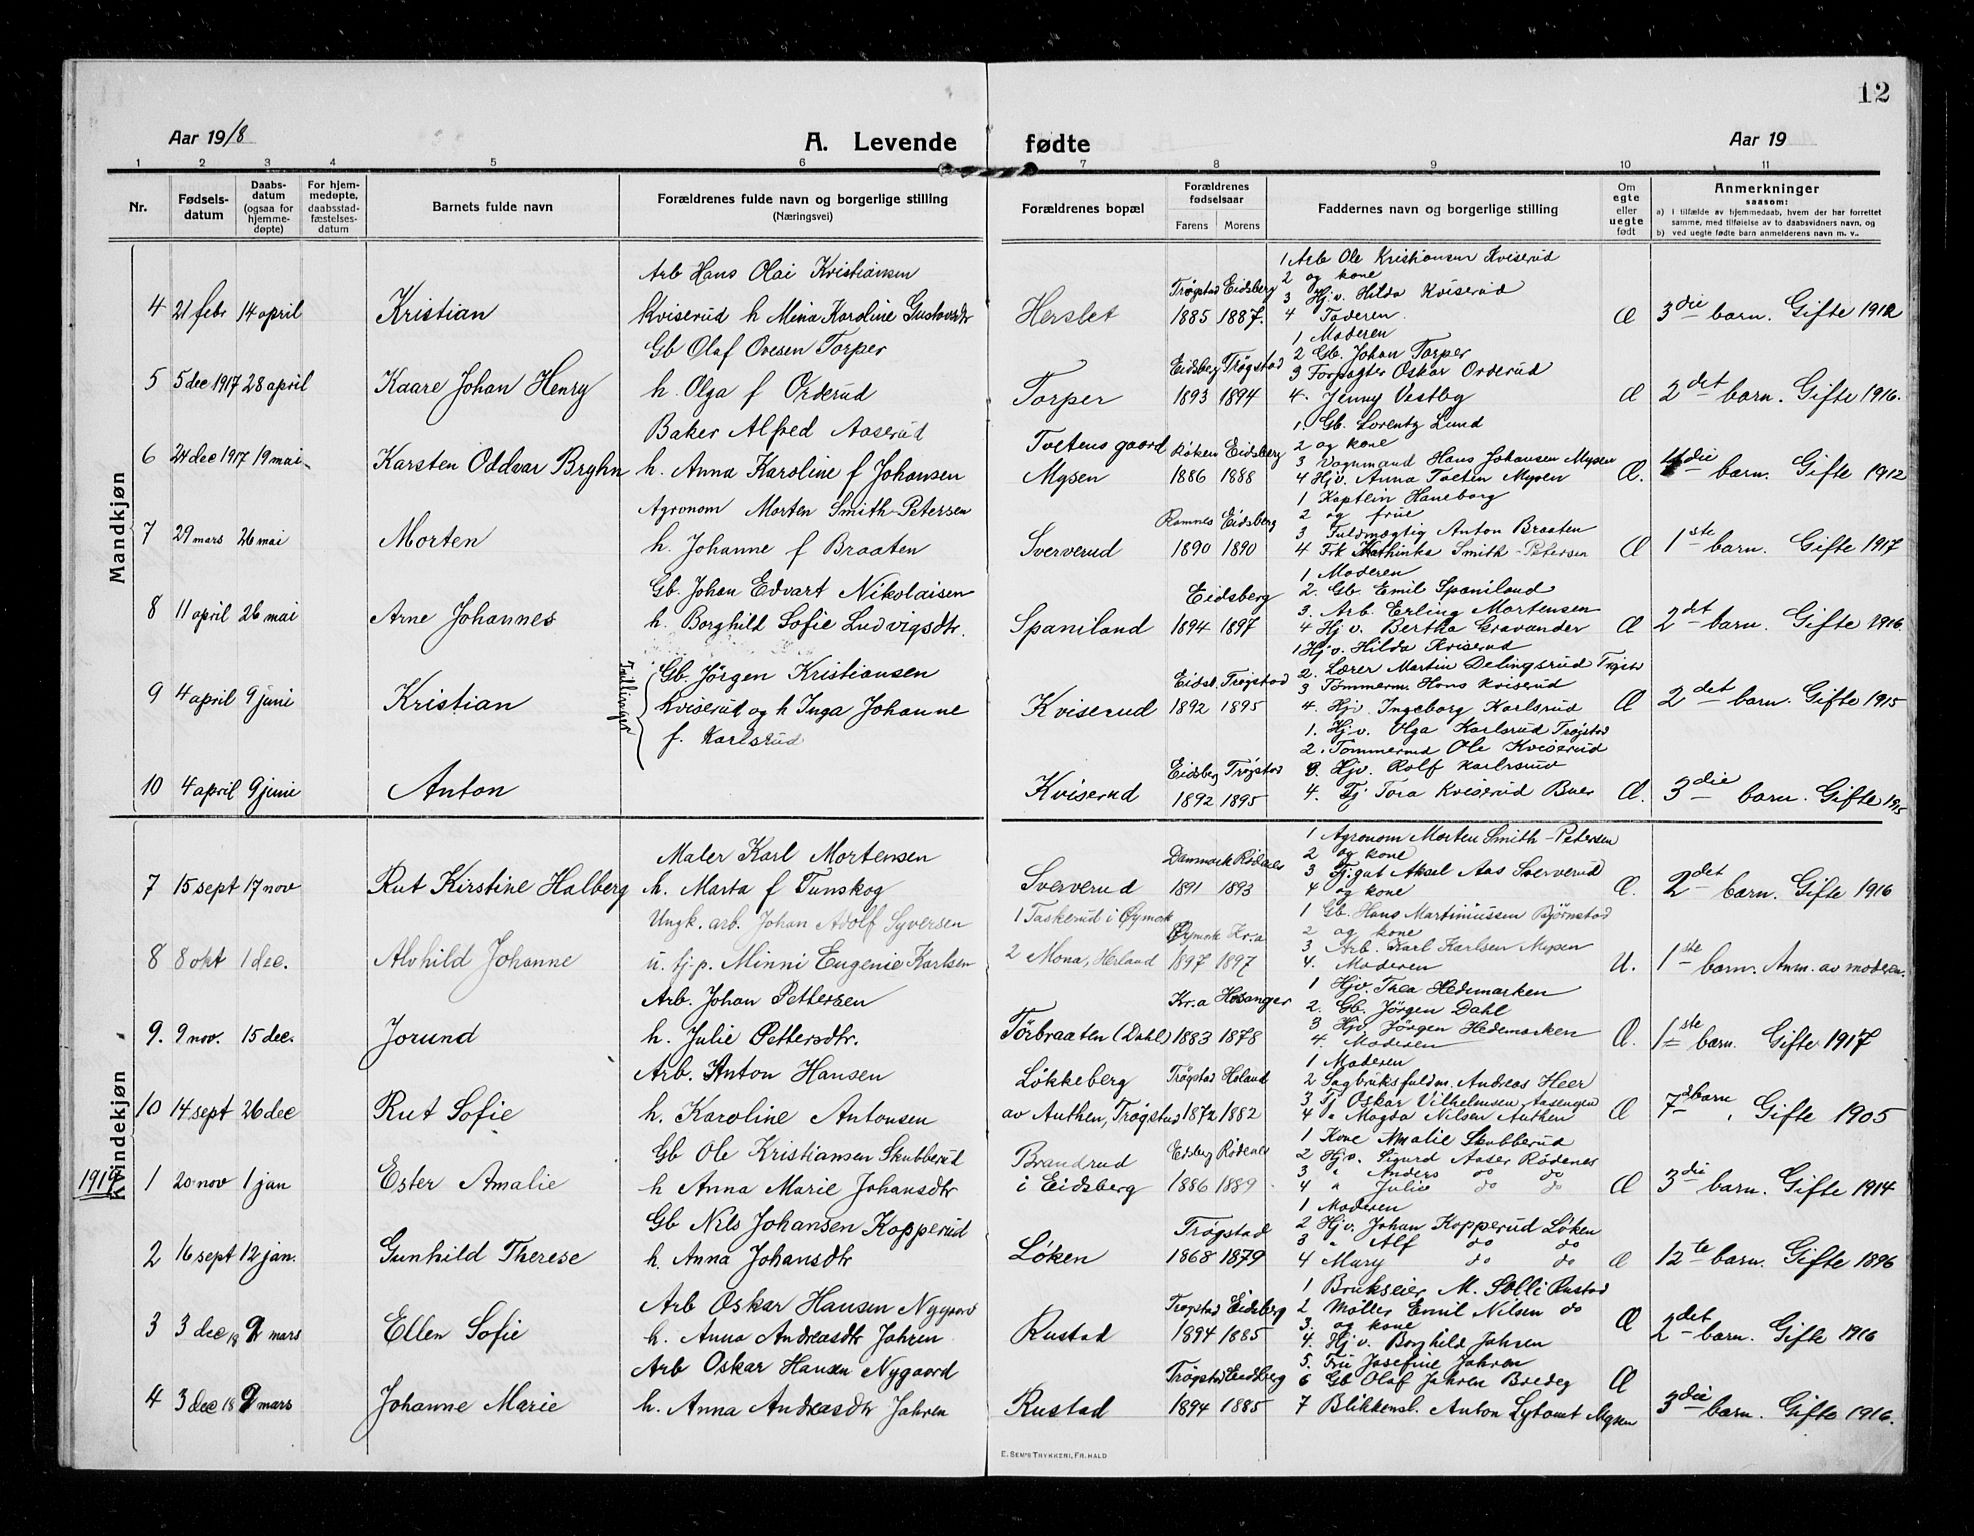 12
Aar 1918 A. Levende fødte Aar 19
1 2 3 4 5 6 7 8 9 10 11
Nr.
Fødsels-
datum
Daabs-
datum
(ogsaa for
hjemme-
døpte)
For hjem-
medøpte,
daabsstad-
fæstelses-
datum
Barnets fulde navn
Forældrenes fulde navn og borgerlige stilling
(Næringsvei)
Forældrenes bopæl
Forældrenes
fødselsaar
Farens Morens
Faddernes navn og borgerlige stilling
Om
egte
eller
uegte
født
Anmerkninger
saasom:
a) i tilfælde av hjemmedaab, hvem der har forrettet
samme, med tilføielse av to daabsvidners navn, og
b) ved uegte fødte barn anmelderens navn m. v..
Mandkjøn
4 21 febr 14 april Kristian
Arb Hans Olai Kristiansen
Kviserud h Mina Karoline Gustavsdtr
Herslet
Trøgstad Eidsberg
1885 1887.
1 Arb Ole Kristiansen Kviserud
2 og kone
3 Hjv. Hilda Kviserud
4 Faderen
Æ 3die barn. Gifte 1912
5 5 dec 1917 28 april Kaare Johan Henry
Gb Olaf Ovesen Torper
h. Olga f Orderud
Torper
Eidsberg Trøgstad
1893 1894
1 Moderen
2 Gb. Johan Torper
3 Forpagter Oskar Orderud
4. Jenny Vestby
Æ 2det barn. Gifte 1916.
6 24 dec 1917 19 mai Karsten Oddvar Bryhn
Baker Alfred Aaserud
h. Anna Karoline f Johansen
Tvetens gaard
Mysen
Røken Eidsberg
1886 1888
1. Gb. Lorentz Lund
2 og kone
3 Vognmand Hans Johansen Mysen
4 Hjv. Anna Tveten Mysen
Æ. 4die barn. Gifte 1912
7 29 mars 26 mai Morten
Agronom Morten Smith-Petersen
h. Johanne f Braaten
Sververud
Ramnes Eidsberg
1890 1890
1 Kaptein Haneborg
2 og frue
3 Fuldmægtig Anton Braaten
4 Frk Kathinka Smith-Petersen
Æ 1ste barn. Gifte 1917
8 11 april 26 mai Arne Johannes
Gb. Johan Edvart Nikolaisen
h. Borghild Sofie Ludvigsdtr.
Spaniland
Eidsberg
1894 1897
1 Moderen
2. Gb Emil Spaniland
3. Arb. Erling Mortensen
4 Hjv. Bertha Gravander
Æ 2det barn. Gifte 1916.
9 4 april 9 juni Kristian
Tvillinger
Gb. Jörgen Kristiansen
Kviserud og h Inga Johanne
f. Karlsrud
Kviserud
Eidsb. Trøgstad
1892 1895
1 Hjv. Hilda Kviserud
2. Lærer Martin Delingsrud Trøgst
3 Tømmerm. Hans Kviserud
4. Hjv. Ingeborg Karlsrud
Æ 2det barn. Gifte 1915
10 4 april 9 juni Anton
Kviserud
Eidsberg Trøgstad
1892 1895
1. Hjv. Olga Karlsrud Trøgstad
2. Tømmermd Ole Kviserud
3. Hjv. Rolf Karlsrud
4. Tj Tora Kviserud Buer
Æ. 3die barn. Gifte 1915
Kvindekjøn
7 15 sept 17 nov Rut Kirstine Halberg
Maler Karl Mortensen
h. Marta f Tunskog
Sververud
Danmark Rødenes
1891 1893
1 Agronom Morten Smith-Petersen
2 og kone
3 Tj.gut Aksel Aas Sververud
4 og kone
Æ. 2det barn. Gifte 1916
8 8 okt 1 dec. Alvhild Johanne
Ungk. arb. Johan Adolf Syversen
u. tj.p. Minni Eugenie Karlsen
1 Taskerud i Øymark
2 Mona, Herland
Øymark Kr.a
1897 1897
1 Gb. Hans Martiniussen Bjørnstad
2 og kone
3 Arb. Karl Karlsen Mysen
4. Moderen
U. 1ste barn. Anm. av moderen.
9. 9 nov. 15 dec. Jorund
Arb. Johan Pettersen
h. Julie Pettersdtr.
Törbraaten (Dahl)
Kr.a Hosanger
1883 1878
1 Hjv. Thea Hedemarken
2. Gb. Jörgen Dahl
3 Hjv Jörgen Hedemarken
4. Moderen
Æ. 1ste barn. Gifte 1917
10 14 sept 26 dec Rut Sofie
Arb. Anton Hansen
h. Karoline Antonsen
Løkkeberg
av Authen, Trøgstad
Trøgstad Høland
1872 1882
1 Moderen
2 Sagbruksfuldm. Andreas Heer
3 Tj Oskar Vilhelmsen Aasengen
4 " Magda Nilsen Authen
Æ 7d barn. Gifte 1905
1919
1 20 nov 1 jan Ester Amalie
Gb Ole Kristiansen Skubberud
h Anna Marie Johansdtr
Brandrud
i Eidsberg
Eidsberg Rødenes
1886 1889
1 Kone Amalie Skubberud
2 Hjv. Sigurd Aaser Rødenes
3 " Anders do do
4 " Julie do do
Æ 3die barn. Gifte 1914
2 16 sept 12 jan. Gunhild Therese
Gb Nils Johansen Kopperud
h. Anna Johansdtr
Løken
Trøgstad
1868 1879
1 Moderen
2 Hjv. Johan Kopperud Løken
3 " Alf do do
4 Mary do do
Æ 12te barn. Gifte 1896
3 3 dec 18 9 mars Ellen Sofie
Arb Oskar Hansen Nygaard
h. Anna Andreasdtr Jahren
Rustad
Trøgstad Eidsberg
1894 1885
1 Brukseier M. Solli Rustad
2 Møller Emil Nilsen do
3. og kone
4. Hjv. Borghild Jahren
Æ 2det barn. Gifte 1916
4 3 dec 18 9 mars Johanne Marie
Arb Oskar Hansen Nygaard
h. Anna Andreasdtr Jahren
Rustad
Trøgstad Eidsberg
1894 1885
5. Fru Josefine Jahren
6 Gb Olaf Jahren Bredeg
7 Blikkensl. Anton Lytomt Mysen
Æ 3die barn. Gifte 1916.
E. SEM'S TRYKKERI, FR.HALD